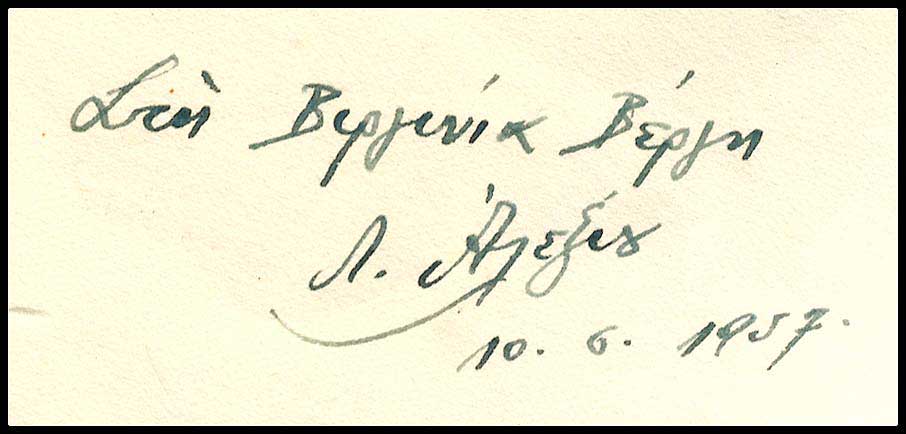 Στὴ Βιργινία Βέργη
Λ. Ἀλεξίου
10. 6. 1957.